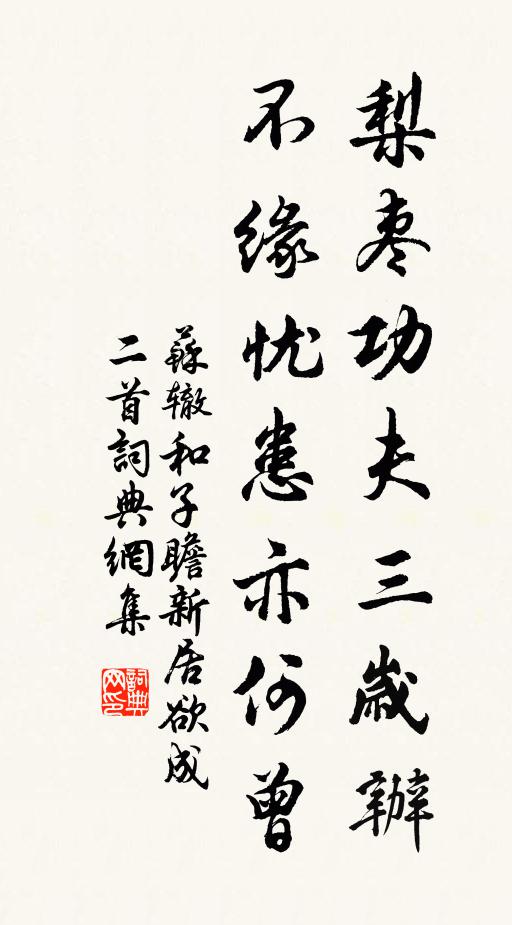 梨枣功夫三歳辦
不缘忧患亦何曾
蘇辙和子瞻新居欲成
二首詞典網集
詞典
网印